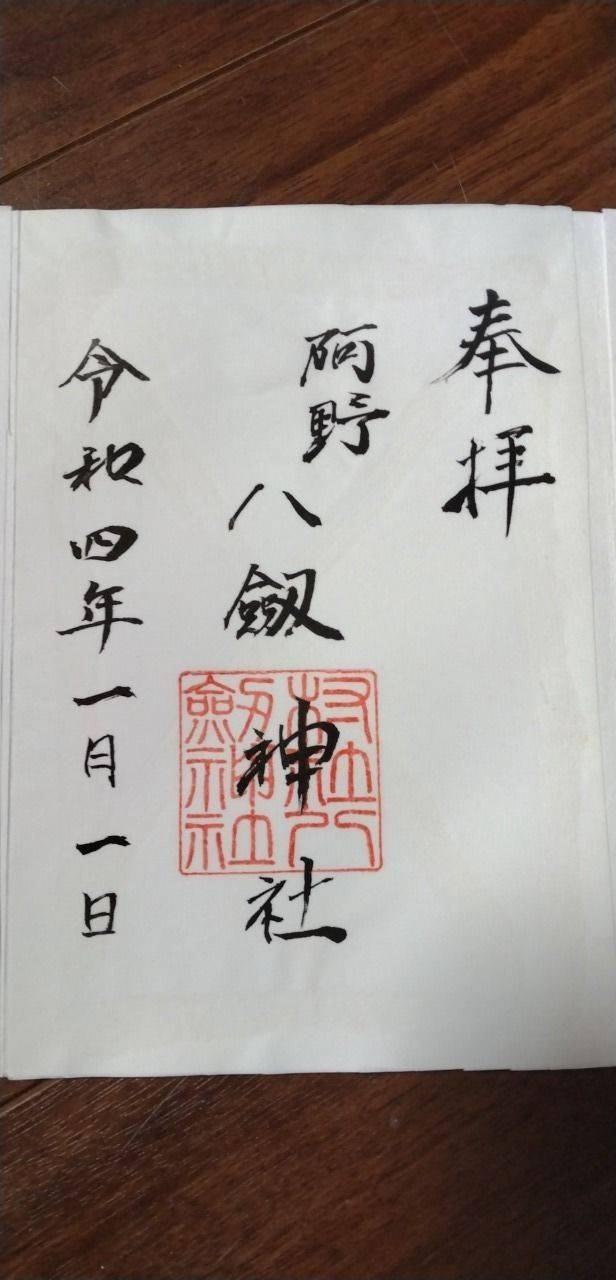 奉拝
阿野
八劔神社
村社八
劔神社
令和四年一月一日